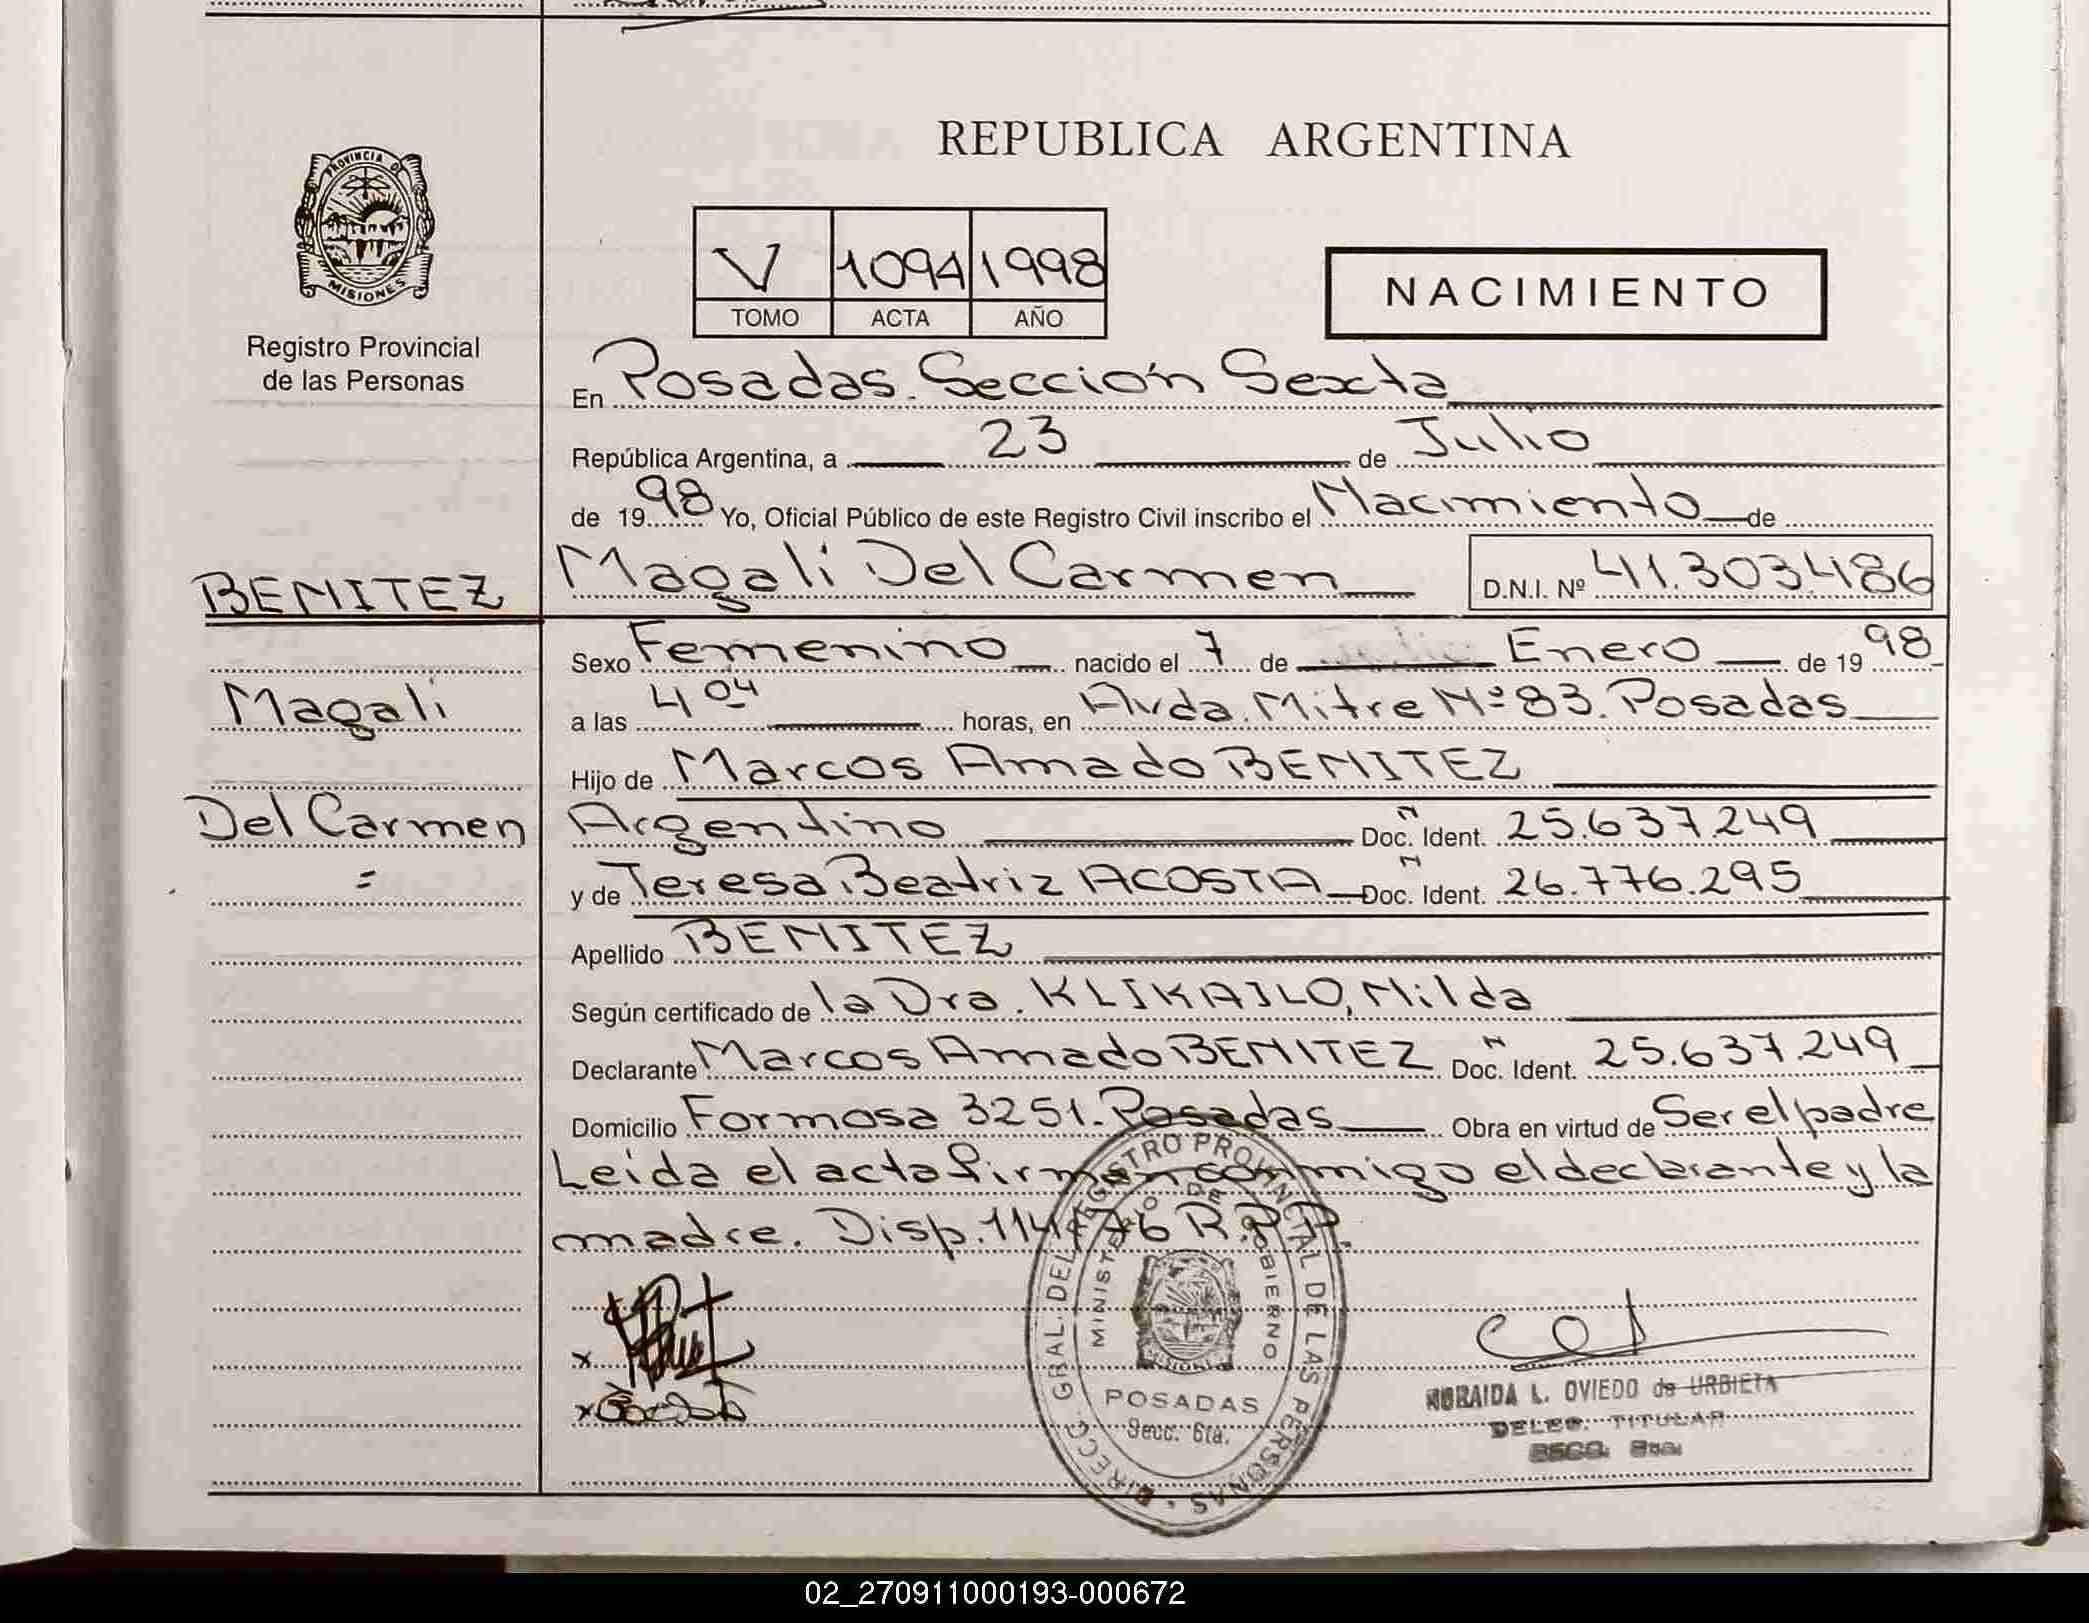 REPUBLICA ARGENTINA
PROVINCIA DE
MISIONES
Registro Provincial
de las Personas
V 1094 1998
TOMO ACTA AÑO
NACIMIENTO
En Posadas. Sección Sexta
República Argentina, a 23 de Julio
de 1998 Yo, Oficial Público de este Registro Civil inscribo el Nacimiento de
BENITEZ
Magali Del Carmen D.N.I. Nº 41.303.486
Sexo Femenino nacido el 7 de Enero de 1998
Magali
a las 4 04 horas, en Avda. Mitre Nº 83. Posadas
Hijo de Marcos Amado BENITEZ
Del Carmen
Argentino Doc. N Ident. 25.637.249
y de Teresa Beatriz ACOSTA Doc. N Ident. 26.776.295
Apellido BENITEZ
Según certificado de la Dra. KLIKAILO, Nilda
Declarante Marcos Amado BENITEZ Doc. N Ident. 25.637.249
Domicilio Formosa 3251. Posadas Obra en virtud de Ser el padre
Leida el acta firman conmigo el declarante y la
madre. Disp. 114/76 R.P.P.
DIRECC. GRAL. DEL REGISTRO PROVINCIAL DE LAS PERSONAS
MINISTERIO DE GOBIERNO
MISIONES
POSADAS
Secc. 6ta.
x
x Acosta
NORAIDA L. OVIEDO de URBIETA
DELEG. TITULAR
SECC. 6ta.
02_270911000193-000672